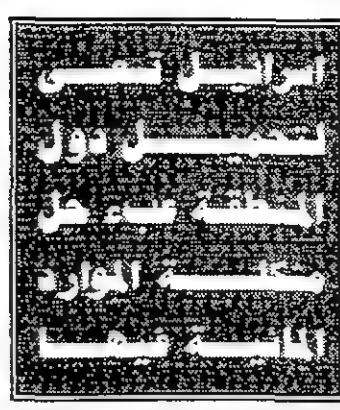 اسرائيل تسعى
لتحميل دول
المنطقة عبء حل
مشكلة الموارد
المائية فيها